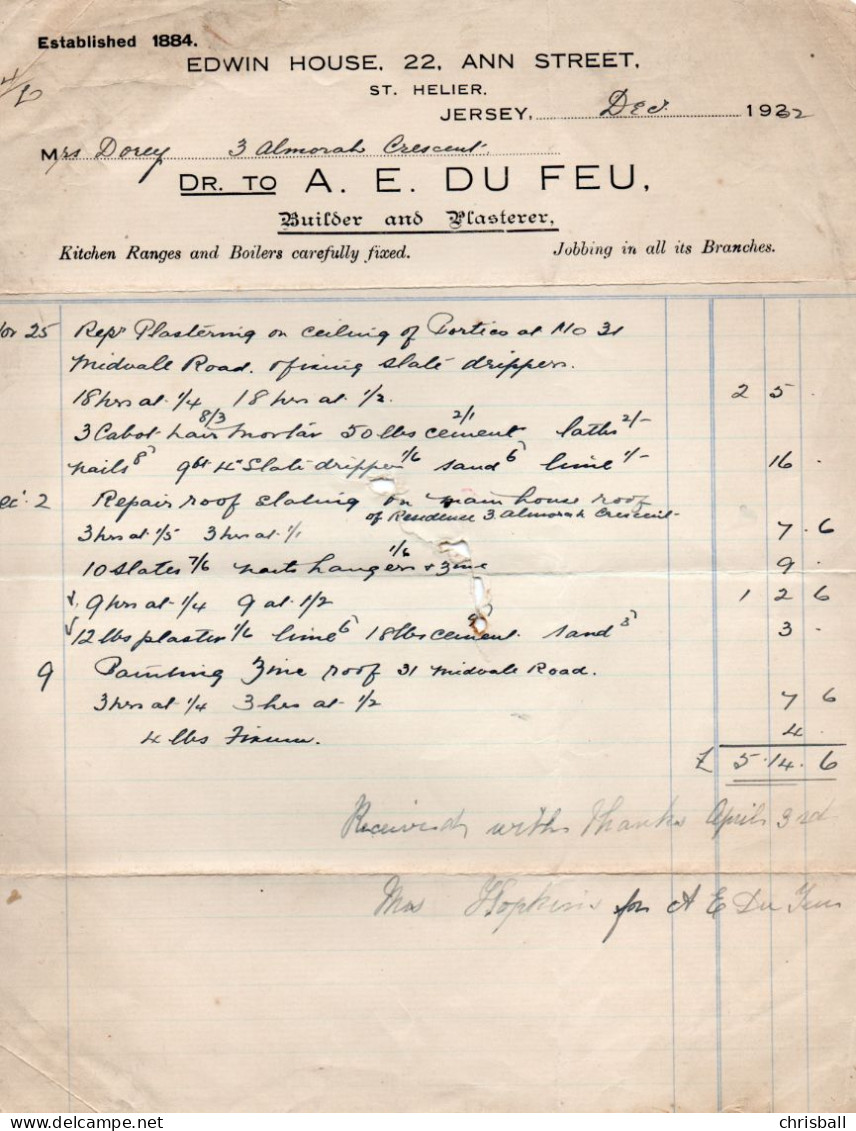 Established 1884.
EDWIN HOUSE, 22, ANN STREET,
ST. HELIER,
JERSEY, Dec. 1932
Mrs Dorey 3 Almorah Crescent.
DR. TO A. E. DU FEU,
Builder and Plasterer,
Kitchen Ranges and Boilers carefully fixed. Jobbing in all its Branches.
Nov 25 Repr Plastering on ceiling of Portico at No 31
Midvale Road. & fixing slate drippers.
18 hrs at 1/4 18 hrs at 1/2. 2 5 .
3 Cabot hair mortar 8/3 50 lbs cement 2/1 laths 2/-
nails 8d slate dripper 1/6 sand 6d lime 1/- 16 .
Dec. 2 Repair roof slating on main house roof
of Residence 3 Almorah Crescent
3 hrs at 1/5 3 hrs at 1/1 7 . 6
10 slates 7/6 nails hangers & zinc 1/6 9 .
9 hrs at 1/4 9 at 1/2 1 2 6
12 lbs plaster 1/6 lime 6d 18 lbs cement 9d sand 3d 3 .
9 Painting Zinc roof 31 Midvale Road.
3 hrs at 1/4 3 hrs at 1/2 7 6
4 lbs 4 .
£ 5 . 14 . 6
Received with Thanks April 3rd
Mrs Hopkins for A E Du Feu
chrisball